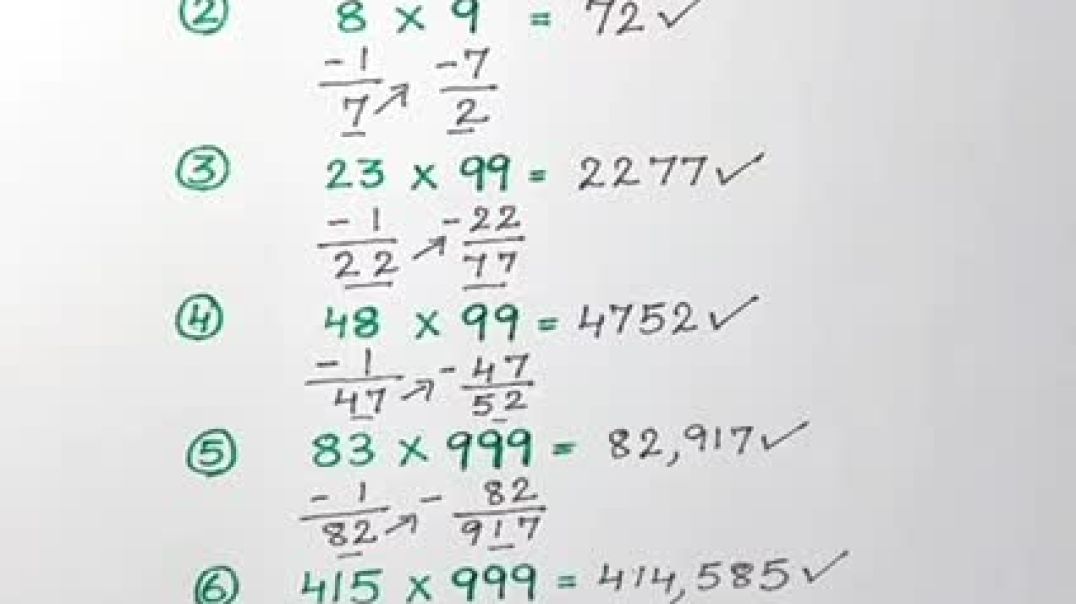 ② 8 × 9 = 72 ✓
- 1 - 7
7 ↗ 2
③ 23 × 99 = 2277 ✓
- 1 - 22
22 ↗ 77
④ 48 × 99 = 4752 ✓
- 1 - 47
47 ↗ 52
⑤ 83 × 999 = 82,917 ✓
- 1 - 82
82 ↗ 917
⑥ 415 × 999 = 414,585 ✓